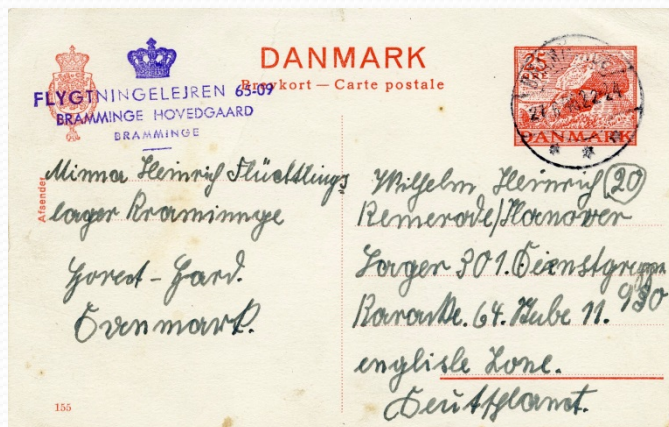 DANMARK
Brevkort — Carte postale
25
DANMARK
FLYGTNINGELEJREN 65-07
BRAMMINGE HOVEDGAARD
BRAMMINGE
Afsender
Minna Heinrich Flüchtlings
lager Bramminge
Danmark.
Wilhelm Heinrich (20)
Bemerode/Hanover
Lager 301. Dienstgruppe
930
Baracke. 64. Stube 11.
englische Zone.
Deutschland.
155